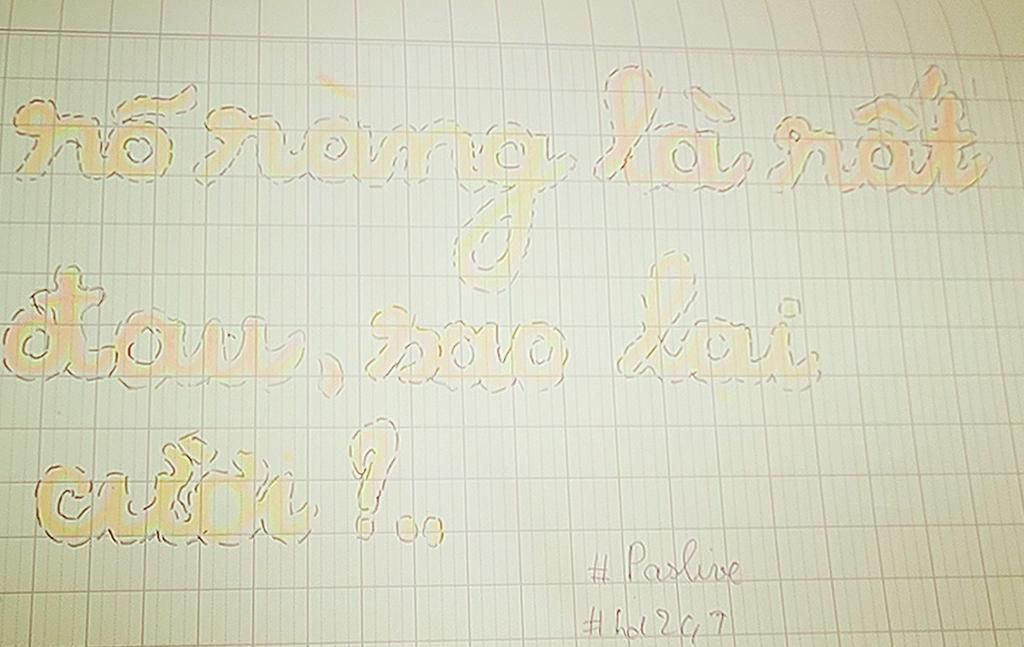 rõ ràng là rất
đau, sao lại
cười !..
# Paslive